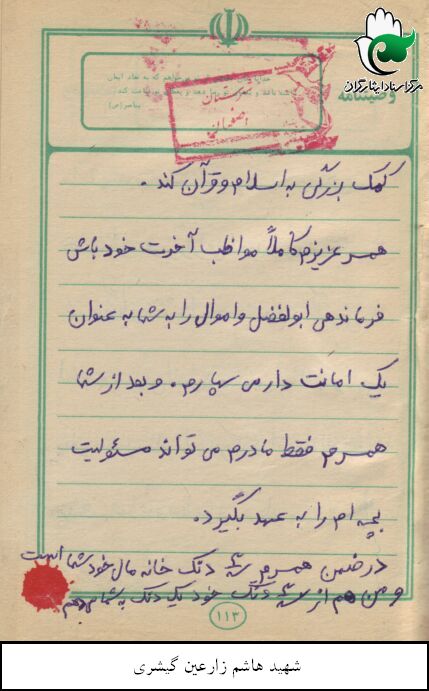 مرکز اسناد ایثارگران
وصیتنامه
کمک بزرگی به اسلام و قرآن کند.
همسر عزیزم کاملاً مواظب آخرت خود باش
فرماندهی ابوالفضل و اموال را به شما به عنوان
یک امانت دار می سپارم. و بعد از شما
همسرم فقط مادرم می تواند مسئولیت
بچه ام را به عهده بگیرد.
در ضمن همسرم شش دنگ خانه مال خود شما است
و من هم از شش دنگ خود یک دنگ به شما می دهم
۱۱۳
شهید هاشم زارعین گیشری